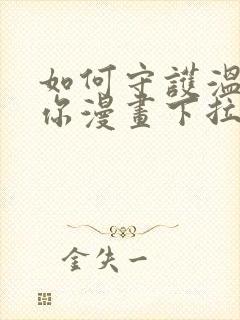 如何守護溫
你漫畫下拉
金失一